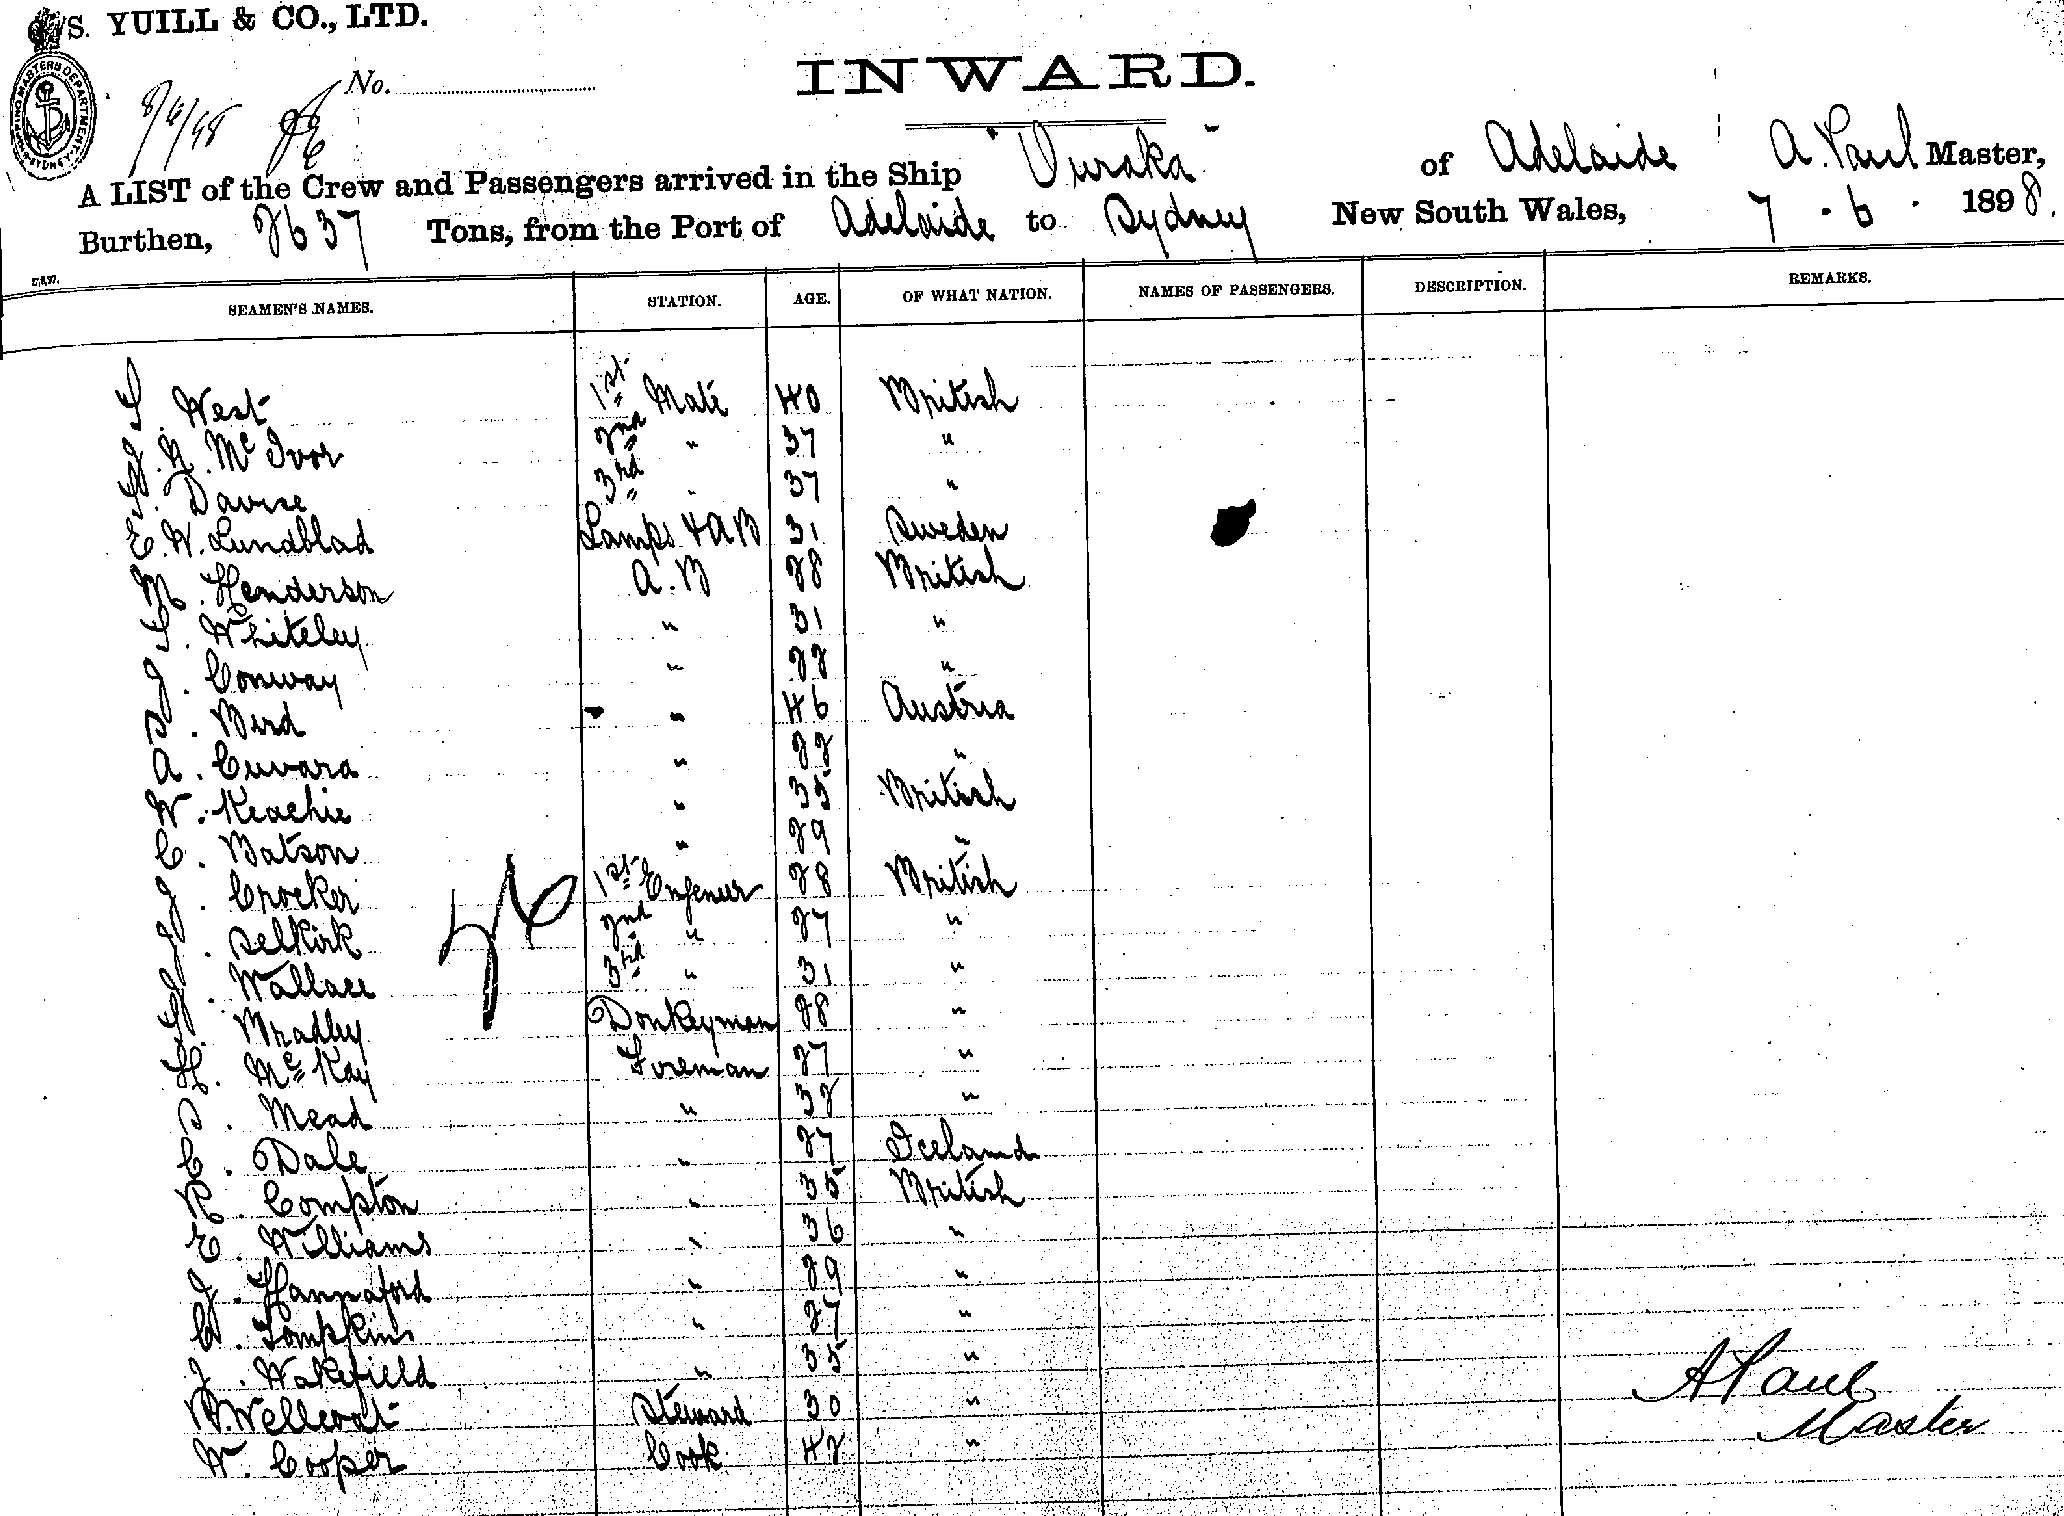 S. YUILL & CO., LTD.
No.
INWARD.
8/6/98
A LIST of the Crew and Passengers arrived in the Ship "Ouraka" of Adelaide A. Paul Master,
Burthen, 2637 Tons, from the Port of Adelaide to Sydney New South Wales, 7 . 6 . 1898.
SEAMEN'S NAMES. STATION. AGE. OF WHAT NATION. NAMES OF PASSENGERS. DESCRIPTION. REMARKS.
West 1st Mate 40 British
McIvor 2nd " 37 "
Davise 3rd " 37 "
E. W. Lundblad Lamps & AB 31 Sweden
M. Henderson A.B 28 British
Whiteley " 31 "
J. Conway " 22 "
Bird " 46 Austria
A. Cuvara " 22 "
W. Keachie " 35 British
C. Batson " 29 "
J. Crocker 1st Engeneer 28 British
J. Selkirk 2nd " 27 "
J. Wallace 3rd " 31 "
Bradley Donkeyman 28 "
H. McKay Foreman 27 "
Mead " 32 "
C. Dale " 27 Iceland
R. Compton " 35 British
E. Williams " 36 "
J. Hannaford " 29 "
C. Tompkins " 27 "
J. Wakefield " 35 "
Wellcoat Steward 30 "
W. Cooper Cook 42 "
A Paul
Master